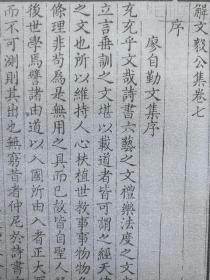 解文毅公集卷七
序
廖自勤文集序
充充乎文哉詩書六藝之文禮樂法度之文
立言垂訓之文堪以載道者皆可謂之經天
之文也所以維持人心扶植世教事事物物
條理非苟為是無用之具而已故皆自聖人
後世學焉譬諸由道以入國所由入者正大
而不可測則其出也無窮昔者仲尼於詩書